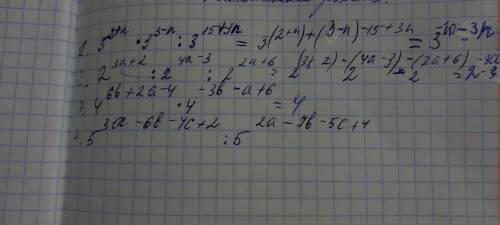 1. 3^{2+n} · 3^{3-n} : 3^{15+3n} = 3^{(2+n)+(3-n)-15+3n} = 3^{-10-3n}
2. 2^{3a+2} : 2^{4a-3} : 2^{2a+6} = 2^{(3a-2)-(4a-3)-(2a+6)} = 2
3. 4^{6b+2a-4} · 4^{-3b-a+6} = 4
4. 5^{3a-6b-4c+2} : 5^{2a-7b-5c+4}